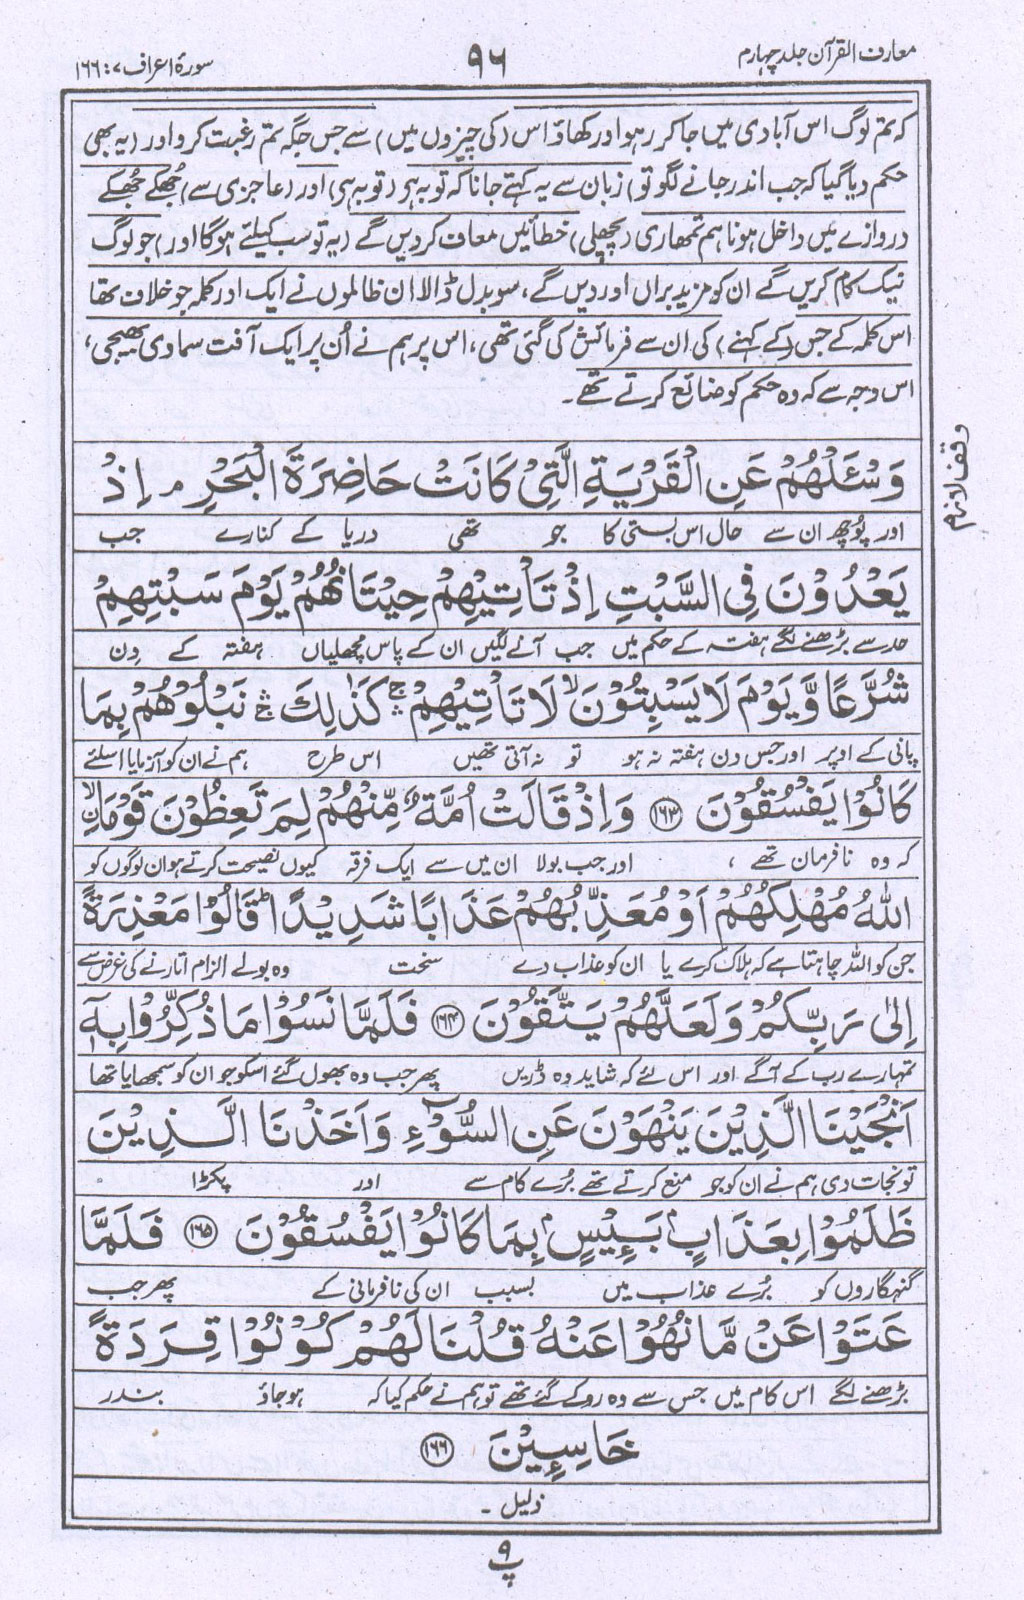 معارف القرآن جلد چہارم
۹۶
سورۂ اعراف ۷ : ۱۶۶
کہ تم لوگ اس آبادی میں جا کر رہو اور کھاؤ اس (کی چیزوں میں) سے جس جگہ تم رغبت کرو اور (یہ بھی
حکم دیا گیا کہ جب اندر جانے لگو تو) زبان سے یہ کہتے جانا کہ توبہ ہی (توبہ ہی) اور (عاجزی سے) جُھکے جُھکے
دروازے میں داخل ہونا ہم تمھاری (پچھلی) خطائیں معاف کر دیں گے (یہ تو سب کیلئے ہوگا اور) جو لوگ
نیک کام کریں گے ان کو مزید براں اور دیں گے، سو بدل ڈالا ان ظالموں نے ایک اور کلمہ جو خلاف تھا
اس کلمہ کے جس (کے کہنے) کی ان سے فرمائش کی گئی تھی، اس پر ہم نے اُن پر ایک آفت سماوی بھیجی،
اس وجہ سے کہ وہ حکم کو ضائع کرتے تھے۔
وَسْـَٔلْهُمْ عَنِ الْقَرْيَةِ الَّتِيْ كَانَتْ حَاضِرَةَ الْبَحْرِ م اِذْ
وقف لازم
اور پُوچھ ان سے حال اس بستی کا جو تھی دریا کے کنارے جب
يَعْدُوْنَ فِي السَّبْتِ اِذْ تَاْتِيْهِمْ حِيْتَانُهُمْ يَوْمَ سَبْتِهِمْ
حد سے بڑھنے لگے ہفتہ کے حکم میں جب آنے لگیں ان کے پاس مچھلیاں ہفتہ کے دِن
شُرَّعًا وَّيَوْمَ لَا يَسْبِتُوْنَ ۙ لَا تَاْتِيْهِمْ ۛۚ كَذٰلِكَ ۛۚ نَبْلُوْهُمْ بِمَا
پانی کے اوپر اور جس دن ہفتہ نہ ہو تو نہ آتی تھیں اس طرح ہم نے ان کو آزمایا اسلئے
كَانُوْا يَفْسُقُوْنَ ۝۱۶۳ وَاِذْ قَالَتْ اُمَّةٌ مِّنْهُمْ لِمَ تَعِظُوْنَ قَوْمَا ۙ نِ
کہ وہ نافرمان تھے ، اور جب بولا ان میں سے ایک فرقہ کیوں نصیحت کرتے ہو ان لوگوں کو
اللّٰهُ مُهْلِكُهُمْ اَوْ مُعَذِّبُهُمْ عَذَابًا شَدِيْدًا ؕ قَالُوْا مَعْذِرَةً
جن کو اللہ چاہتا ہے کہ ہلاک کرے یا ان کو عذاب دے سخت وہ بولے الزام اتارنے کی غرض سے
اِلٰى رَبِّكُمْ وَلَعَلَّهُمْ يَتَّقُوْنَ ۝۱۶۴ فَلَمَّا نَسُوْا مَا ذُكِّرُوْا بِهٖٓ
تمہارے رب کے آگے اور اس لئے کہ شاید وہ ڈریں پھر جب وہ بھول گئے اسکو جو ان کو سمجھایا تھا
اَنْجَيْنَا الَّذِيْنَ يَنْهَوْنَ عَنِ السُّوْٓءِ وَاَخَذْنَا الَّذِيْنَ
تو نجات دی ہم نے ان کو جو منع کرتے تھے بُرے کام سے اور پکڑا
ظَلَمُوْا بِعَذَابٍۭ بَـِٔيْسٍۭ بِمَا كَانُوْا يَفْسُقُوْنَ ۝۱۶۵ فَلَمَّا
گنہگاروں کو بُرے عذاب میں بسبب ان کی نافرمانی کے پھر جب
عَتَوْا عَنْ مَّا نُهُوْا عَنْهُ قُلْنَا لَهُمْ كُوْنُوْا قِرَدَةً
بڑھنے لگے اس کام میں جس سے وہ روکے گئے تھے تو ہم نے حکم کیا کہ ہو جاؤ بندر
خَاسِـِٕيْنَ ۝۱۶۶
ذلیل ۔
پ ۹